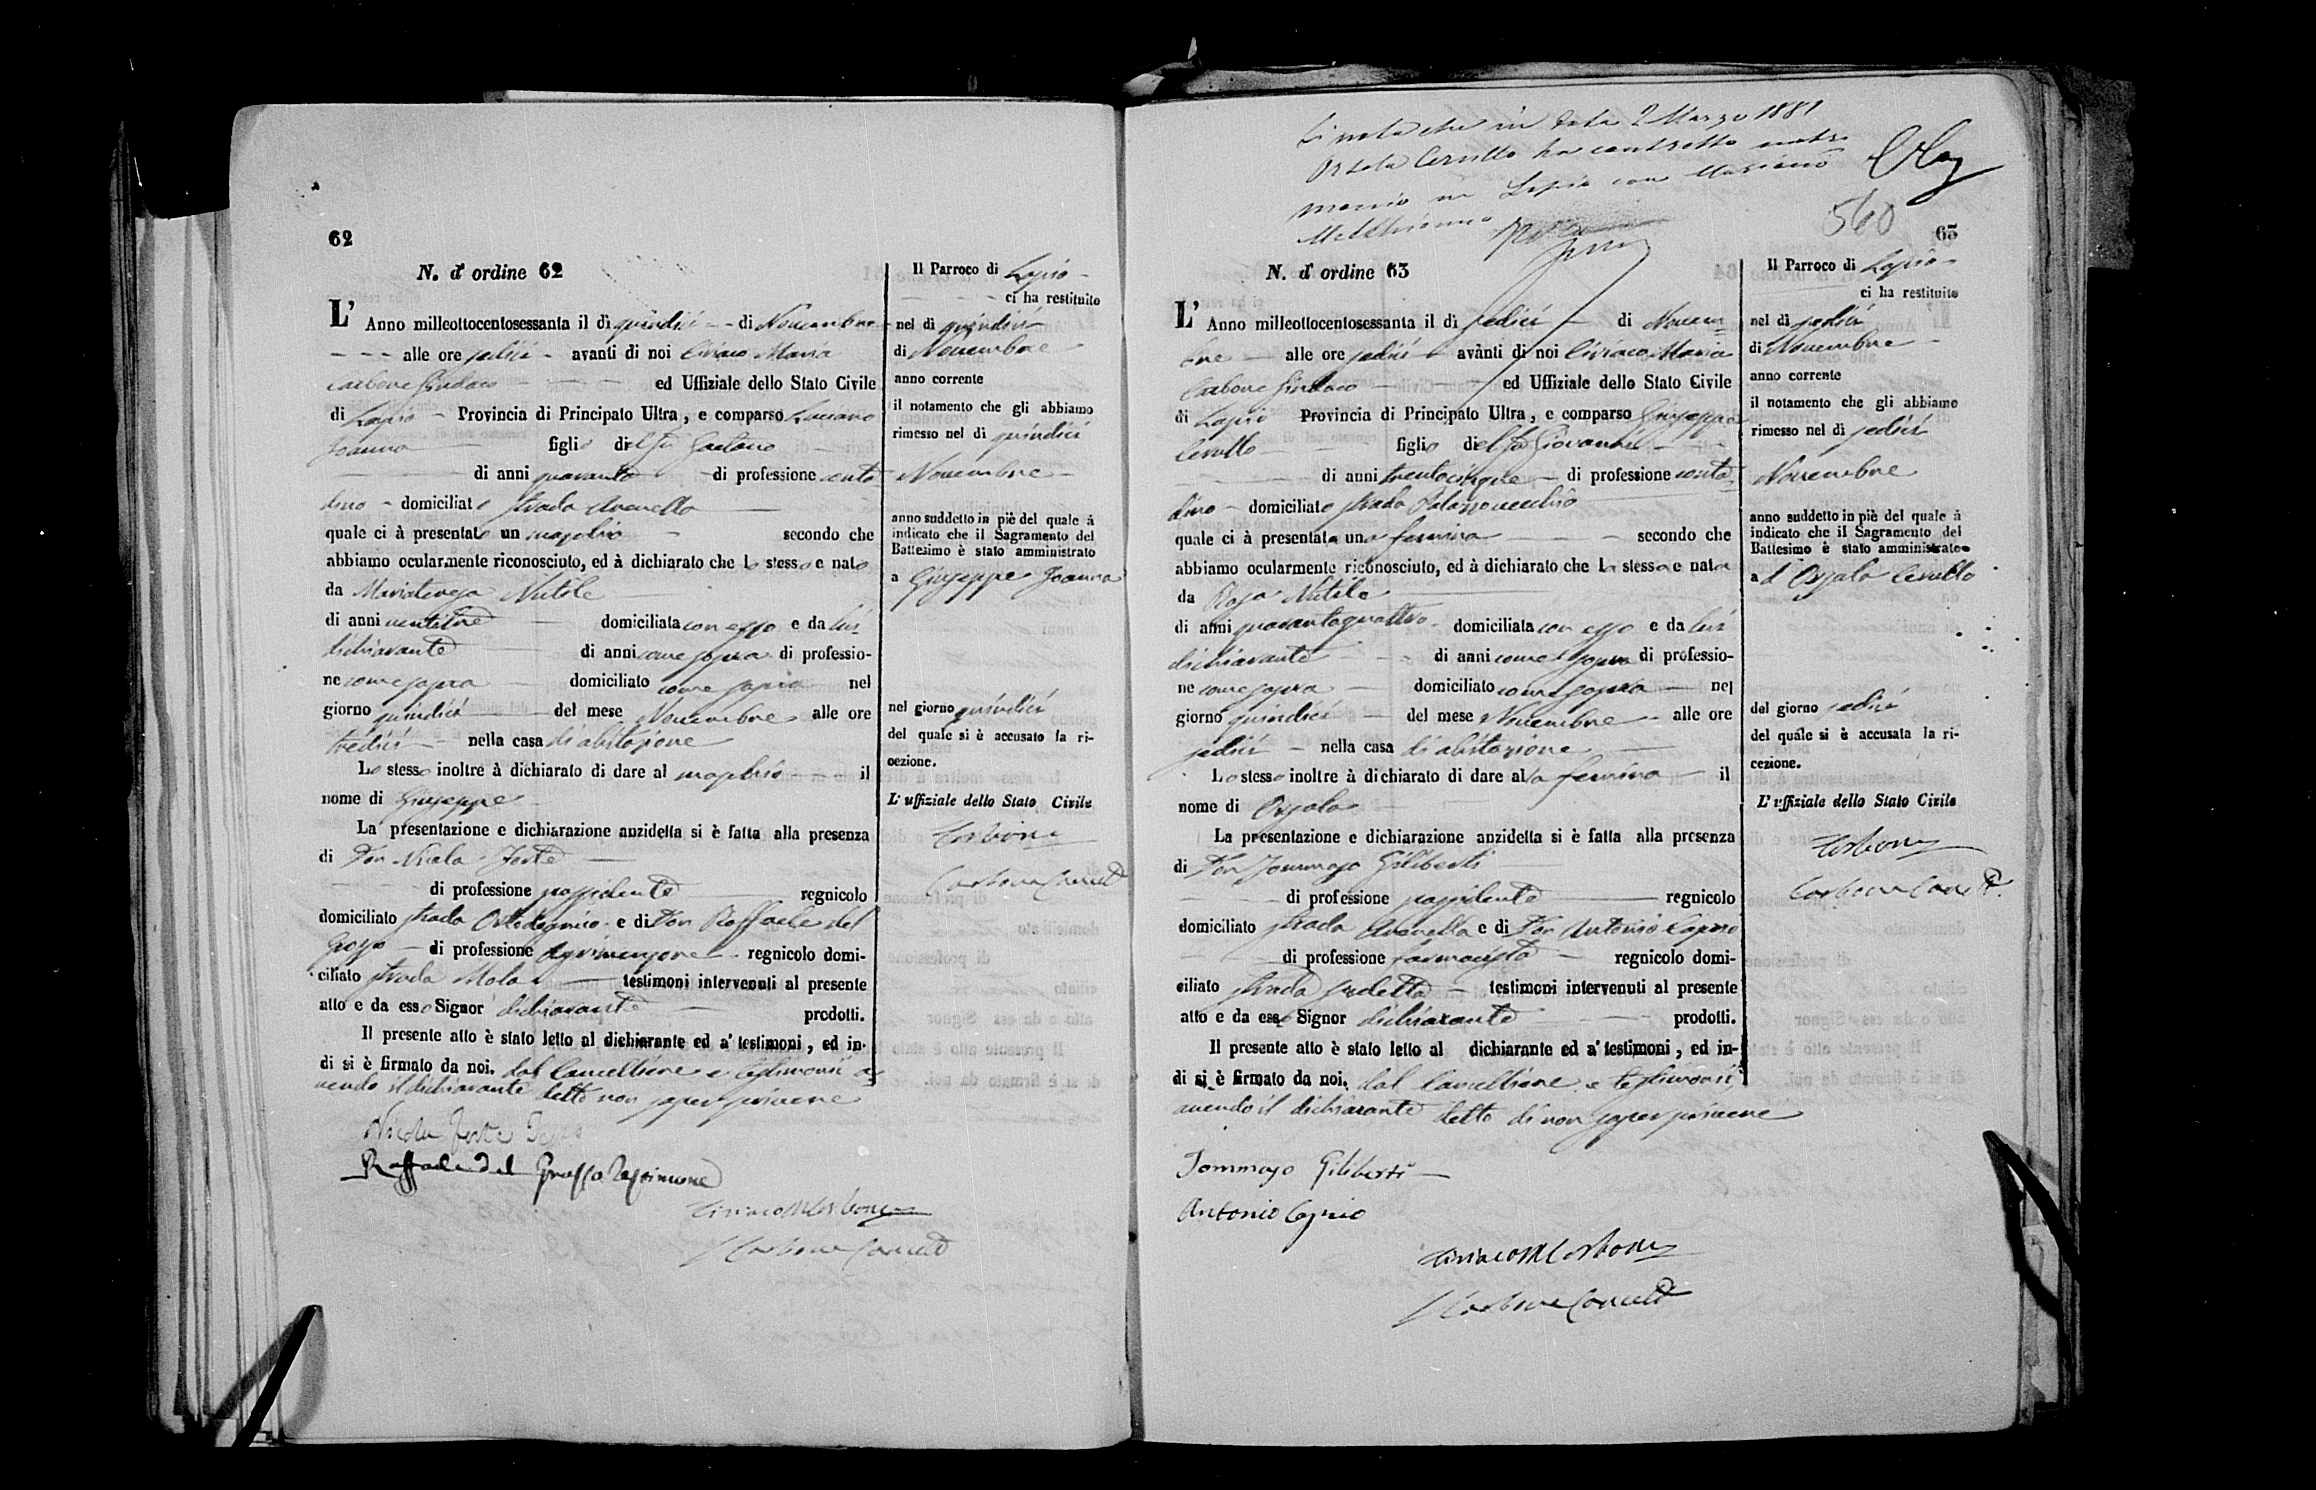 62
N. d' ordine 62
L' Anno milleottocentosessanta il dì quindici di Novembre
alle ore sedici avanti di noi Ciriaco Maria
Carbone Sindaco ed Uffiziale dello Stato Civile
di Lapio Provincia di Principato Ultra, e comparso
Joanna figlio del fu Gaetano
di anni quaranta di professione conta
dino domiciliato strada
quale ci à presentato un maschio secondo che
abbiamo ocularmente riconosciuto, ed à dichiarato che lo stesso e nato
da Mariateresa Nutile
di anni ventitre domiciliata con esso e da lui
dichiarante di anni come sopra di professio-
ne come sopra domiciliato come sopra nel
giorno quindici del mese Novembre alle ore
tredici nella casa di abitazione
Lo stesso inoltre à dichiarato di dare al maschio il
nome di Giuseppe
La presentazione e dichiarazione anzidetta si è fatta alla presenza
di Don Nicola Forte
di professione possidente regnicolo
domiciliato strada e di Don Raffaele del
Grosso di professione Agrimensore regnicolo domi-
ciliato strada Mola testimoni intervenuti al presente
atto e da esso Signor dichiarante prodotti.
Il presente atto è stato letto al dichiarante ed a' testimoni, ed in-
di si è firmato da noi, dal Cancelliere e testimonii a
vendo il dichiarante detto non saper scrivere
Nicola Forte
Raffaele del Grosso Testimone
Ciriaco M Carbone
Carbone Cancell
Il Parroco di Lapio
ci ha restituito
nel dì quindici
di Novembre
anno corrente
il notamento che gli abbiamo
rimesso nel dì quindici
Novembre
anno suddetto in piè del quale à
indicato che il Sagramento del
Battesimo è stato amministrato
a Giuseppe Joanna
nel giorno quindici
del quale si è accusato la ri-
cezione.
L' uffiziale dello Stato Civile
Carbone
Carbone Cancell
Si nota che in data 2 Marzo 1881
Orsola Cerullo ha contratto matri
monio in Lapio con Mariano
560
63
N. d' ordine 63
L' Anno milleottocentosessanta il dì sedici di Novem
bre alle ore sedici avanti di noi Ciriaco Maria
Carbone Sindaco ed Uffiziale dello Stato Civile
di Lapio Provincia di Principato Ultra, e comparso Giuseppe
Cerullo figlio del fu Giovanni
di anni trentacinque di professione conta
dino domiciliato strada Palazzovecchio
quale ci à presentata una femina secondo che
abbiamo ocularmente riconosciuto, ed à dichiarato che la stessa e nata
da Rosa Nutile
di anni quarantaquattro domiciliata con esso e da lui
dichiarante di anni come sopra di professio-
ne come sopra domiciliato come sopra nel
giorno quindici del mese Novembre alle ore
sedici nella casa di abitazione
Lo stesso inoltre à dichiarato di dare alla femina il
nome di Orsola
La presentazione e dichiarazione anzidetta si è fatta alla presenza
di Don Tommaso Giliberti
di professione possidente regnicolo
domiciliato strada e di Don Antonio Caprio
di professione farmacista regnicolo domi-
ciliato strada sudetta testimoni intervenuti al presente
atto e da esso Signor dichiarante prodotti.
Il presente atto è stato letto al dichiarante ed a' testimoni, ed in-
di si è firmato da noi, dal Cancelliere e testimonii,
avendo il dichiarante detto di non saper scrivere
Tommaso Giliberti
Antonio Caprio
Ciriaco M Carbone
Carbone Cancell
Il Parroco di Lapio
ci ha restituito
nel dì sedici
di Novembre
anno corrente
il notamento che gli abbiamo
rimesso nel dì sedici
Novembre
anno suddetto in piè del quale à
indicato che il Sagramento del
Battesimo è stato amministrato
a d'Orsola Cerullo
del giorno sedici
del quale si è accusata la ri-
cezione.
L' uffiziale dello Stato Civile
Carbone
Carbone Cancell